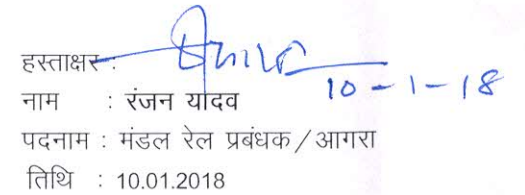 हस्ताक्षर :
10-1-18
नाम : रंजन यादव
पदनाम : मंडल रेल प्रबंधक / आगरा
तिथि : 10.01.2018